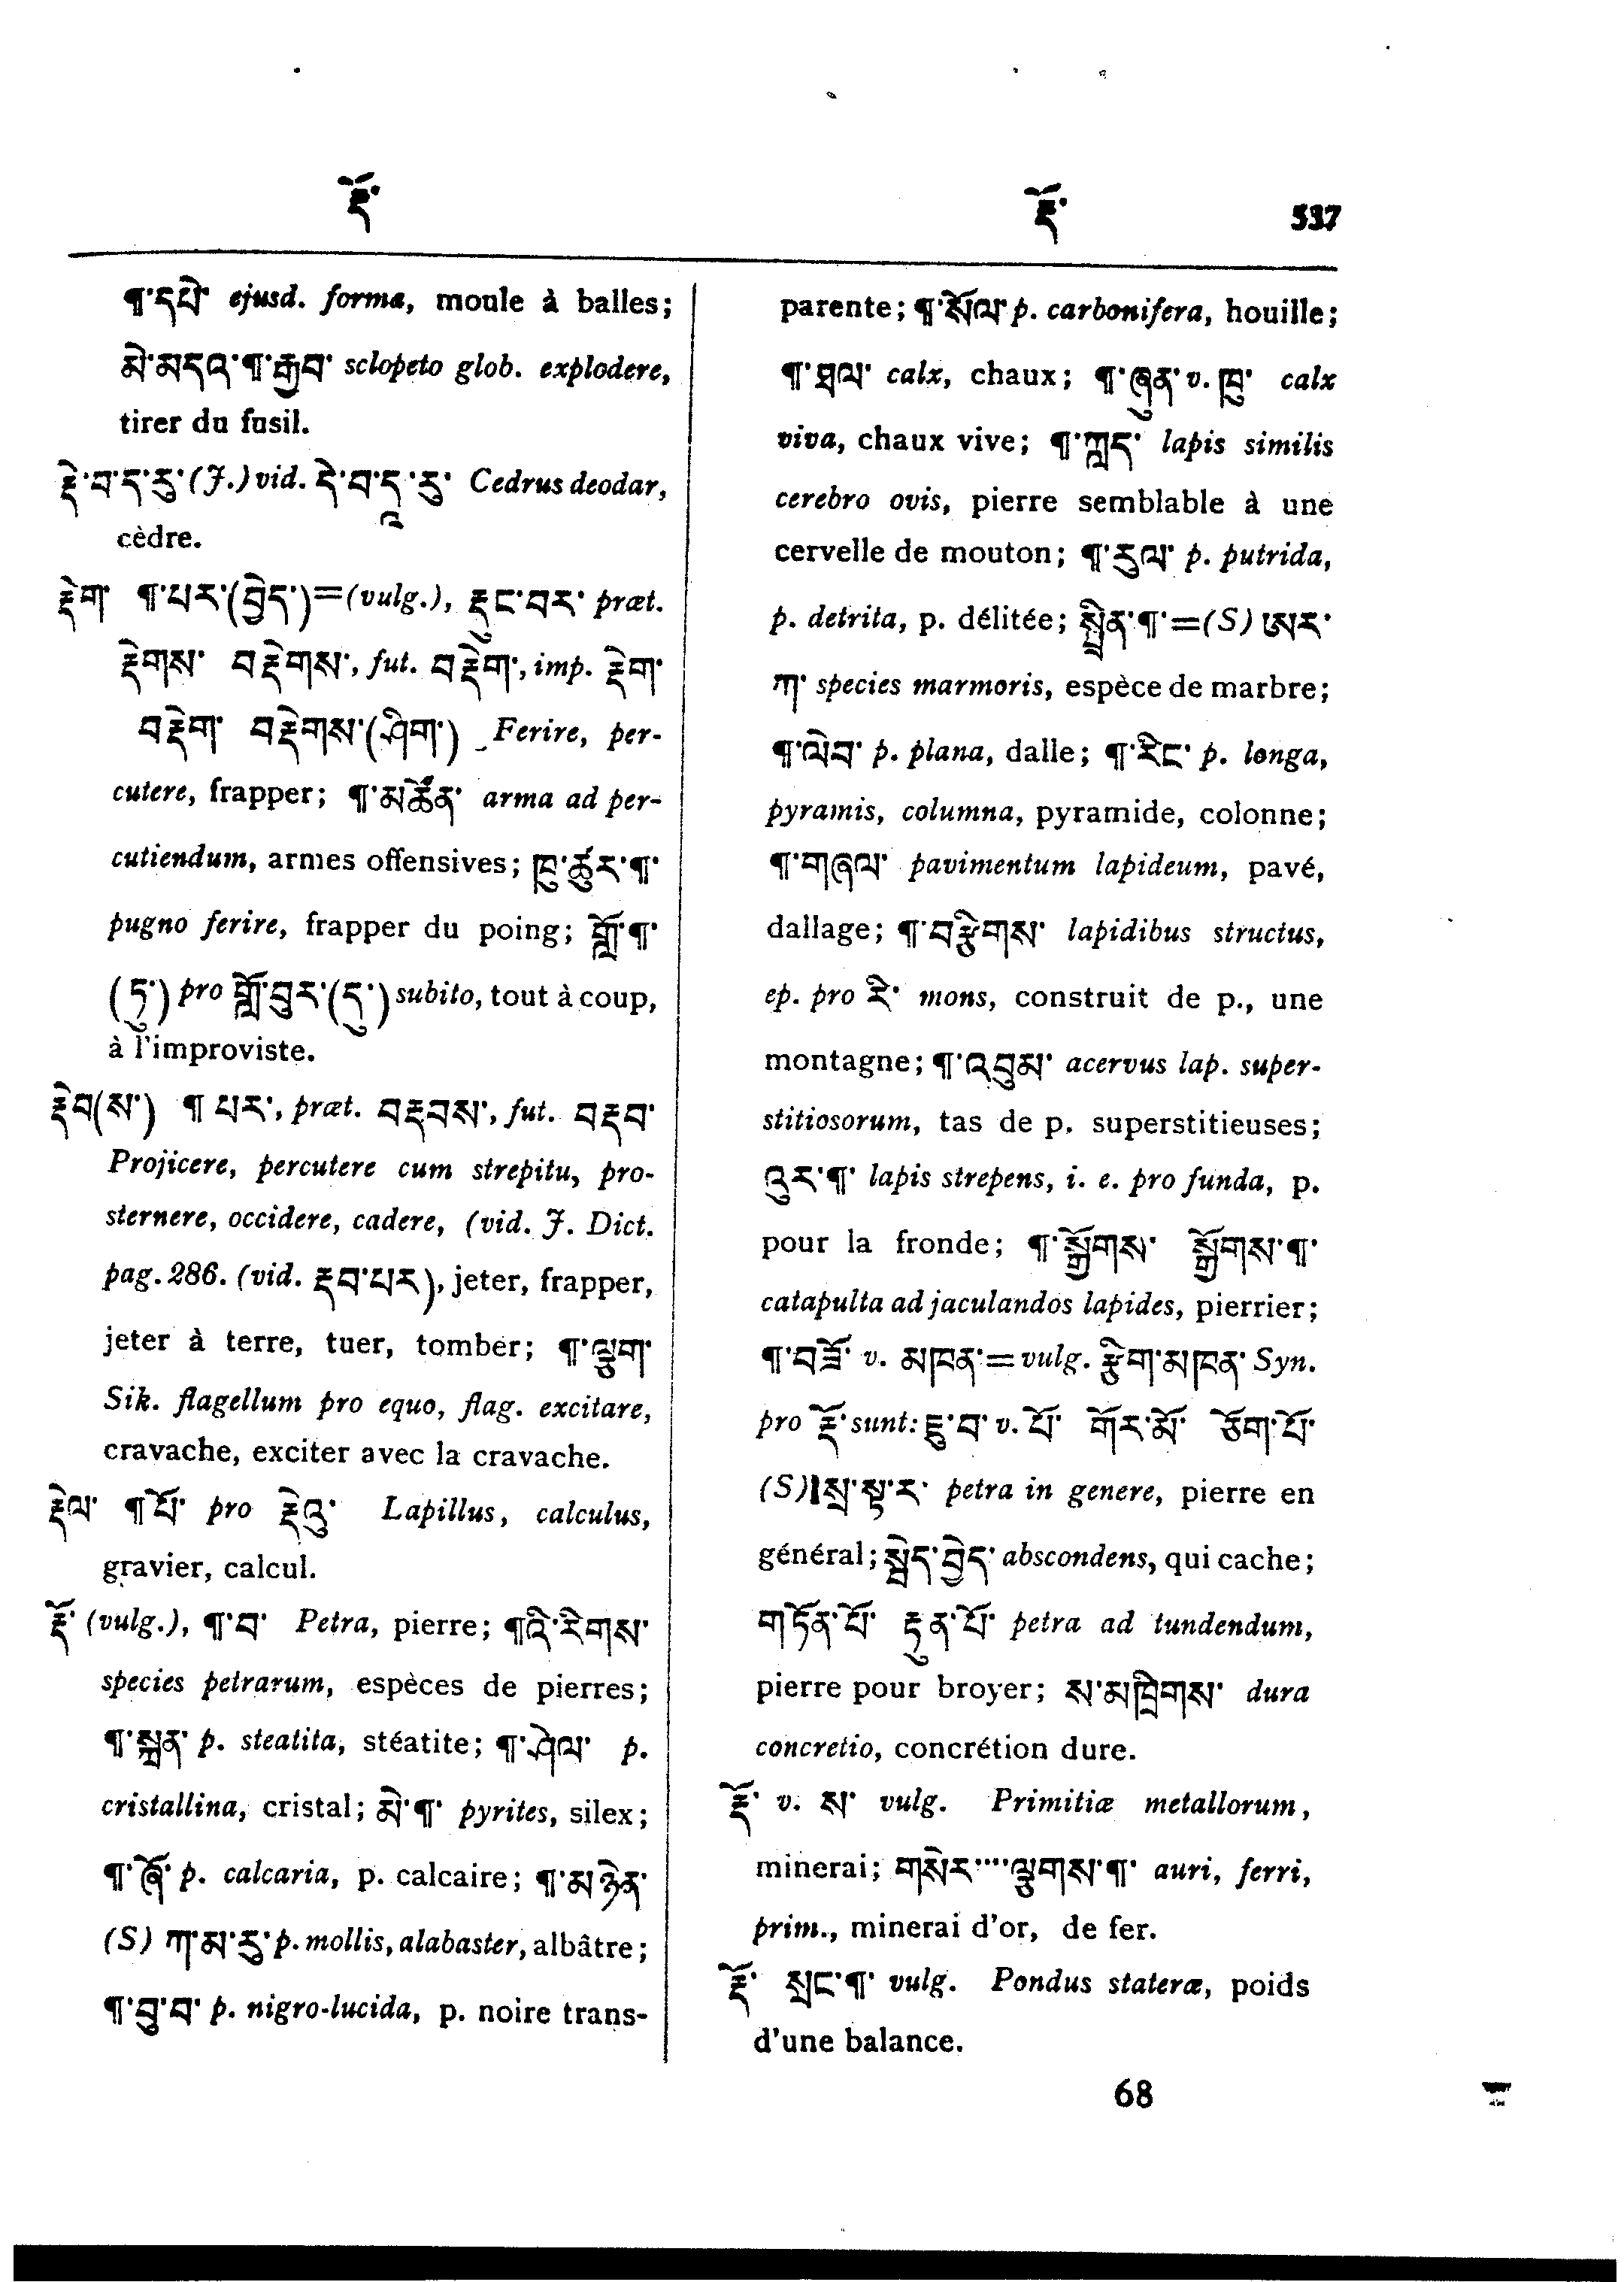 རྡོ་
རྡོ་ 537
¶་དཔེ་ ejusd. forma, moule à balles;
མེ་མདའ་¶་རྒྱབ་ sclopeto glob. explodere,
tirer du fusil.
རྡེ་བ་ད་རུ་ (J.) vid. དེ་བ་དཱ་རུ་ Cedrus deodar,
cèdre.
རྡེག་ ¶་པར་(བྱེད་)=(vulg.), རྡུང་བར་ præt.
རྡེགས་ བརྡེགས་, fut. བརྡེག་, imp. རྡེག་
བརྡེག་ བརྡེགས་(ཤིག་) Ferire, per-
cutere, frapper; ¶་མཚོན་ arma ad per-
cutiendum, armes offensives; ཁུ་ཚུར་¶་
pugno ferire, frapper du poing; གློ་¶་
(ཏུ་) pro གློ་བུར་(དུ་) subito, tout à coup,
à l'improviste.
རྡེབ(ས་) ¶ པར་, præt. བརྡབས་, fut. བརྡབ་
Projicere, percutere cum strepitu, pro-
sternere, occidere, cadere, (vid. J. Dict.
pag. 286. (vid. རྡབ་པར), jeter, frapper,
jeter à terre, tuer, tomber; ¶་ལྕུག་
Sik. flagellum pro equo, flag. excitare,
cravache, exciter avec la cravache.
རྡེལ་ ¶ པོ་ pro རྡེའུ་ Lapillus, calculus,
gravier, calcul.
རྡོ་ (vulg.), ¶་བ་ Petra, pierre; ¶འི་རིགས་
species petrarum, espèces de pierres;
¶་སྨན་ p. steatita, stéatite; ¶་ཤེལ་ p.
cristallina, cristal; མེ་¶་ pyrites, silex;
¶་ཞོ་ p. calcaria, p. calcaire; ¶་མཉེན་
(S) ཀ་མ་རུ་ p. mollis, alabaster, albâtre;
¶་བུ་བ་ p. nigro-lucida, p. noire trans-
parente; ¶་སོལ་ p. carbonifera, houille;
¶་ཐལ་ calx, chaux; ¶་ཞུན་ v. ཁུ་ calx
viva, chaux vive; ¶་ཀླད་ lapis similis
cerebro ovis, pierre semblable à une
cervelle de mouton; ¶་རུལ་ p. putrida,
p. detrita, p. délitée; སྤྲིན་¶་=(S) ཨར་
ཀ་ species marmoris, espèce de marbre;
¶་ལེབ་ p. plana, dalle; ¶་རིང་ p. longa,
pyramis, columna, pyramide, colonne;
¶་གཞལ་ pavimentum lapideum, pavé,
dallage; ¶་བརྩིགས་ lapidibus structus,
ep. pro རི་ mons, construit de p., une
montagne; ¶་འབུམ་ acervus lap. super-
stitiosorum, tas de p. superstitieuses;
འུར་¶་ lapis strepens, i. e. pro funda, p.
pour la fronde; ¶་སྒྱོགས་ སྒྱོགས་¶་
catapulta ad jaculandos lapides, pierrier;
¶་བཟོ་ v. མཁན་=vulg. རྩིག་མཁན་ Syn.
pro རྡོ་ sunt: རྫུ་བ་ v. པོ་ གོར་མོ་ ཅོག་པོ་
(S)།སྲ་སྟ་ར་ petra in genere, pierre en
général; སྦེད་བྱེད་ abscondens, qui cache;
གཏོན་པོ་ རྡུན་པོ་ petra ad tundendum,
pierre pour broyer; ས་མཁྲིགས་ dura
concretio, concrétion dure.
རྡོ་ v. ས་ vulg. Primitiæ metallorum,
minerai; གསེར་····ལྕགས་¶་ auri, ferri,
prim., minerai d'or, de fer.
རྡོ་ སྲང་¶་ vulg. Pondus stateræ, poids
d'une balance.
68